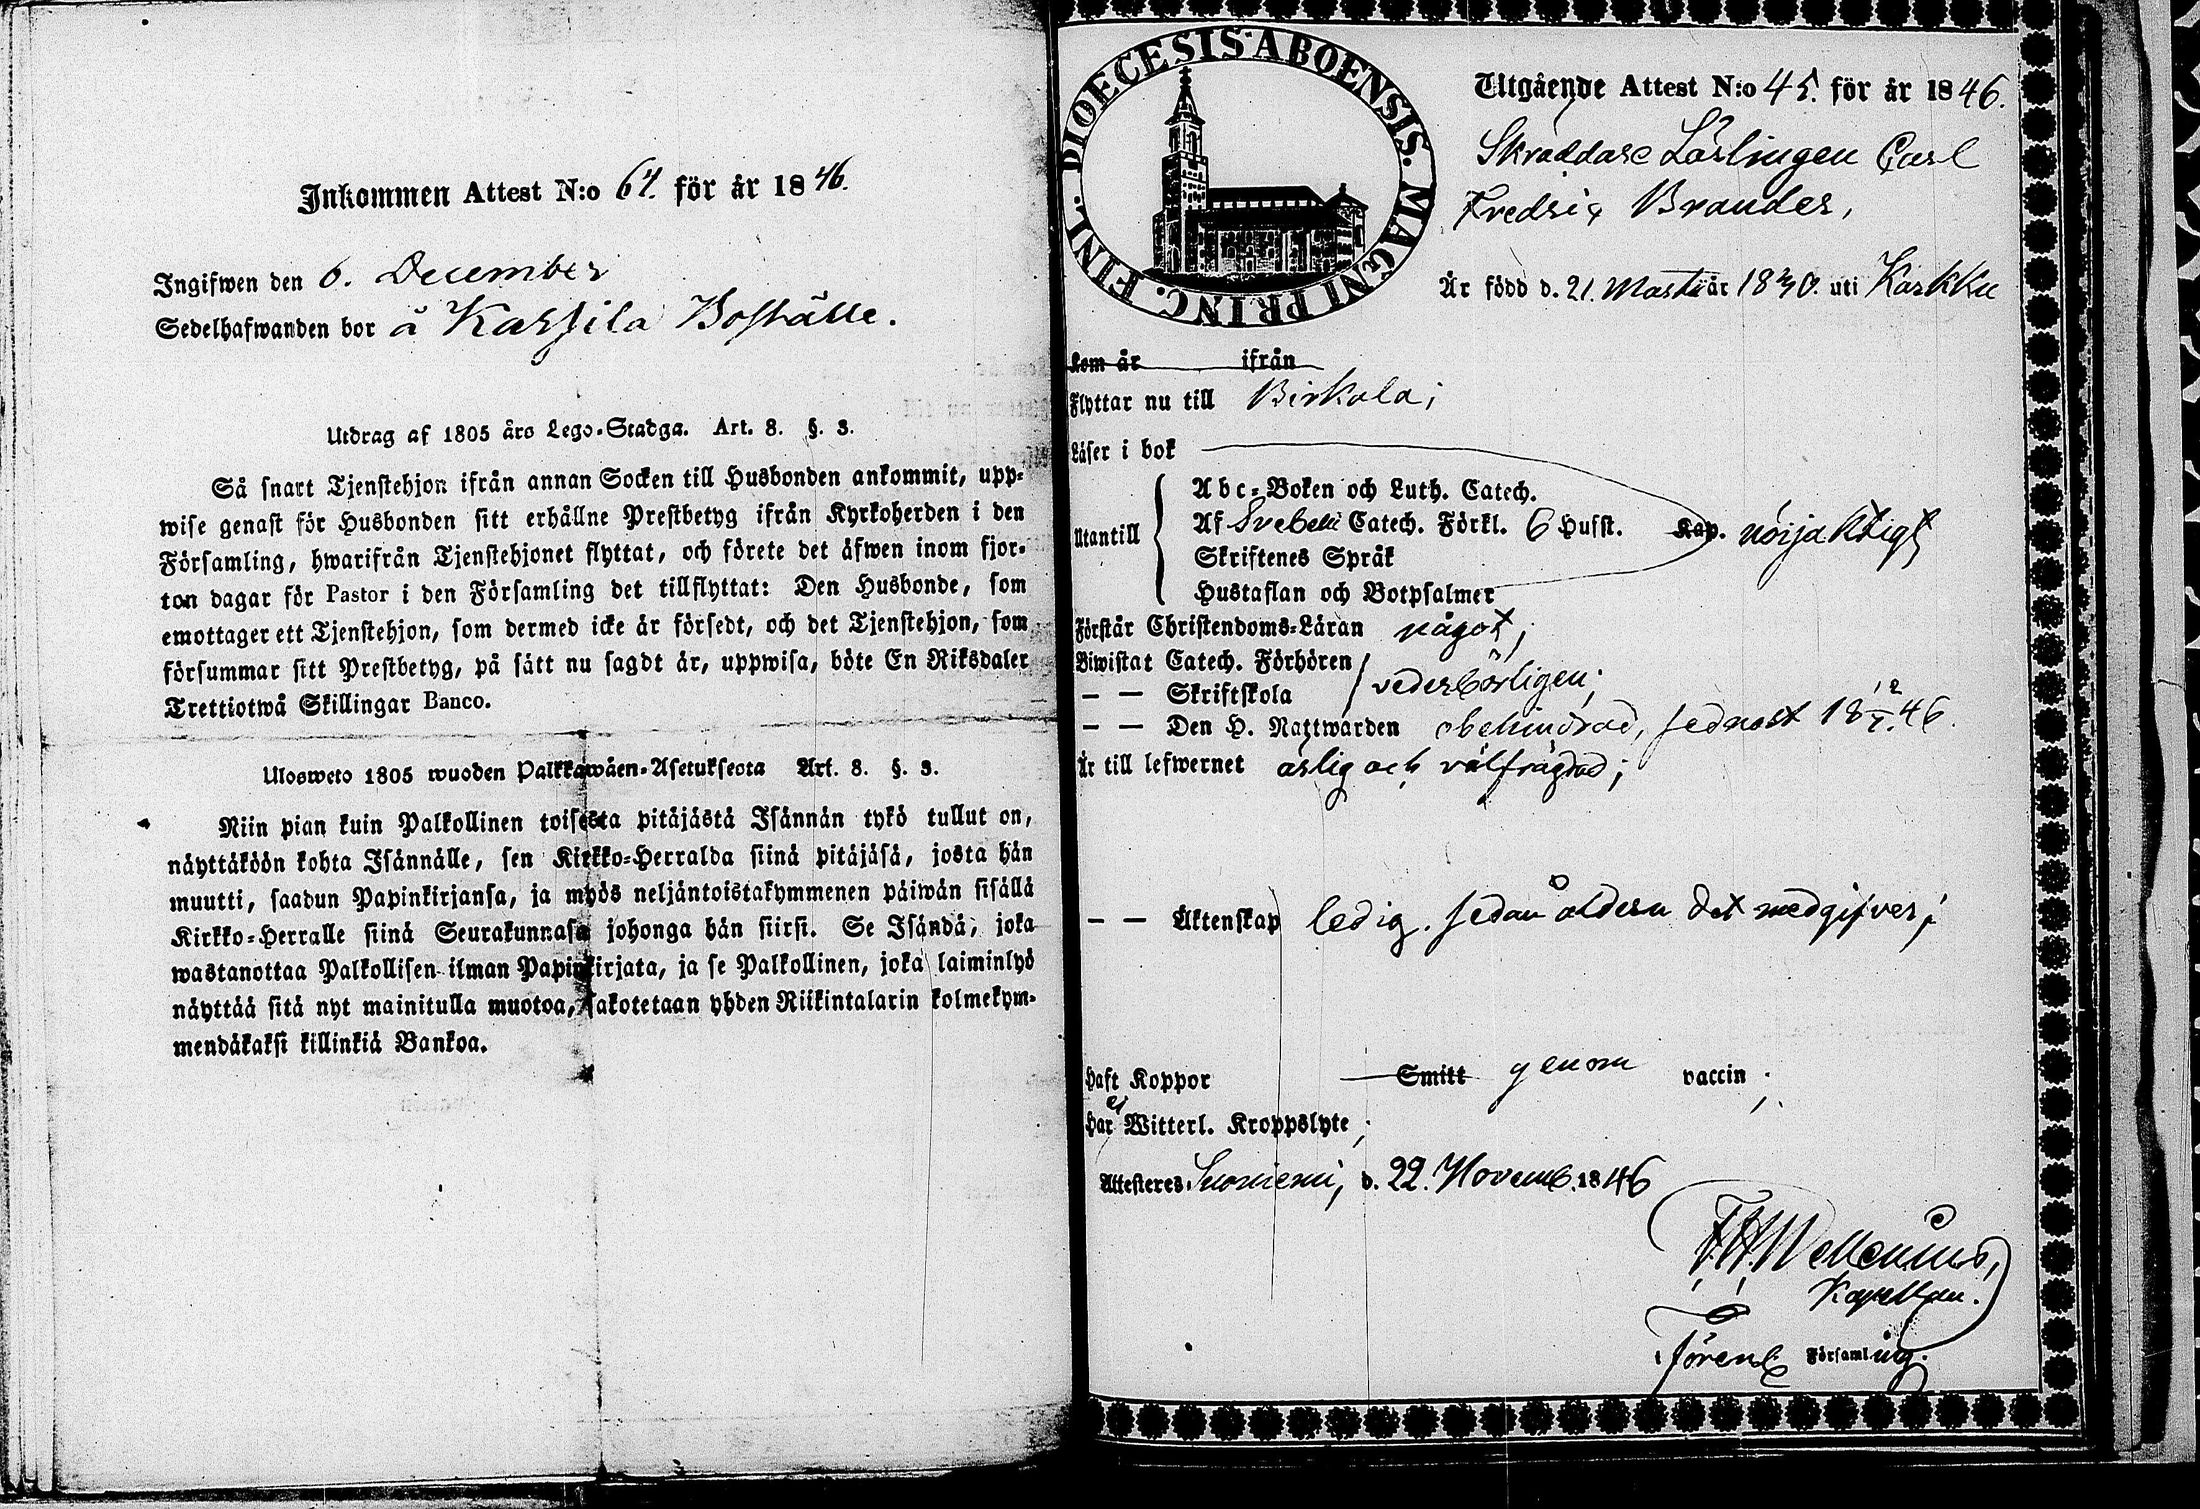 Inkommen Attest N:o 64. för år 1846.
Ingifwen den 6. December
Sedelhafwanden bor å Karsila Boställe.
Utdrag af 1805 års Lego-Stadga. Art. 8. §. 3.
Så snart Tjenstehjon ifrån annan Socken till Husbonden ankommit, upp-
wise genast för Husbonden sitt erhållne Prestbetyg ifrån Kyrkoherden i den
Församling, hwarifrån Tjenstehjonet flyttat, och förete det äfwen inom fjor-
ton dagar för Pastor i den Församling det tillflyttat: Den Husbonde, som
emottager ett Tjenstehjon, som dermed icke är försedt, och det Tjenstehjon, som
försummar sitt Prestbetyg, på sätt nu sagdt är, uppwisa, böte En Riksdaler
Trettiotwå Skillingar Banco.
Ulosweto 1805 wuoden Palkkawäen-Asetuksesta Art. 8. §. 3.
Niin pian kuin Palkollinen toisesta pitäjästä Isännän tykö tullut on,
näyttäköön kohta Isännälle, sen Kirkko-Herralda siinä pitäjäsä, josta hän
muutti, saadun Papinkirjansa, ja myös neljäntoistakymmenen päiwän sisällä
Kirkko-Herralle siinä Seurakunnasa johonga hän siirsi. Se Isändä, joka
wastanottaa Palkollisen ilman Papinkirjata, ja se Palkollinen, joka laiminlyö
näyttää sitä nyt mainitulla muotoa, sakotetaan yhden Riikintalarin kolmekym-
mendäkaksi killinkiä Bankoa.
DIOECESIS ABOENSIS. MAGNI PRINC. FINL.
Utgående Attest N:o 45. för år 1846.
Skräddare Lärlingen Carl
Fredric Brander,
Är född d. 21. Martii år 1830. uti Karkku
Kom år ifrån
Flyttar nu till Birkala;
Läser i bok
Utantill
Abc-Boken och Luth. Catech.
Af Svebelii Catech. Förkl. 6 Hufst. Kap. nöjaktigt
Skriftenes Språk
Hustaflan och Botpsalmer
Förstår Christendoms-Läran något;
Biwistat Catech. Förhören
— — Skriftskola vederbörligen;
— — Den H. Nattwarden obehindrad, sednast 18 12/7. 46.
Är till lefwernet ärlig och välfrägdad;
— — Äktenskap ledig. sedan åldern det medgifver;
Haft Koppor Smitt genom vaccin;
Har ej Witterl. Kroppslyte;
Attesteres Suoniemi, d. 22. Novemb. 1846
F. H. Mellenius,
Kapellan.
i förenb Församling.